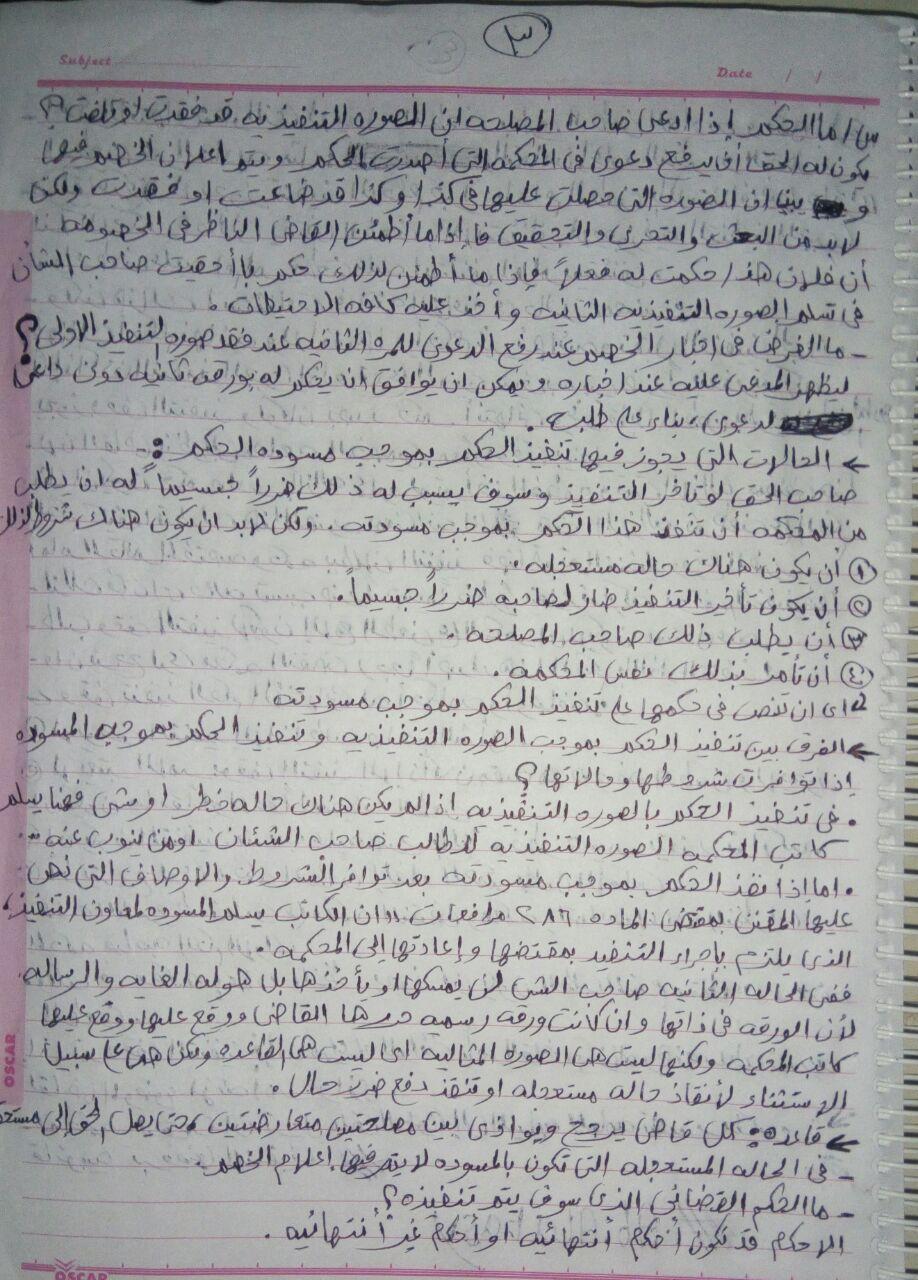 ٣
Subject
Date / /
س/ ما الحكم إذا ادعى صاحب المصلحه ان الصوره التنفيذيه قد فقدت او تلفت؟
يكون له الحق أن يرفع دعوى فى المحكمه التى أصدرت الحكم ويتم اعلان الخصم فيها
و يبنا ان الصوره التى حصلت عليها فى كذا وكذا قد ضاعت او فقدت ولكن
لابد من البحث والتحرى والتحقيق فاذا ما أطمئن القاضى الناظر فى الخصومه
أن فلان هذا حكمت له فعلاً فإذا ما أطمئن لذلك حكم بأحقيت صاحب الشان
فى تسلم الصوره التنفيذيه الثانيه وأخذ عليه كافه الاحتيطات .
- ما الغرض فى اخبار الخصم عند رفع الدعوى للمره الثانيه عند فقد صوره التنفيذ الاولى؟
ليظهر المدعى عليه عند اخباره ويمكن ان يوافق ان يحكم له بورقه ثانيه دون داعى
لدعوى، بناء على طلبه .
← الحالات التى يجوز فيها تنفيذ الحكم بموجب مسوده الحكم :-
صاحب الحق لو تأخر التنفيذ وسوف يسبب له ذلك ضرراً جسيماً له ان يطلب
من المحكمه أن تنفذ هذا الحكم بموجب مسودته . ولكن لابد ان يكون هناك شروط لذلك
① أن يكون هناك حاله مستعجله .
② أن يكون تأخير التنفيذ ضار لصاحبه ضرراً جسيماً .
③ أن يطلب ذلك صاحب المصلحه .
④ أن تأمر بذلك نفس المحكمه .
اى ان تنص فى حكمها على تنفيذ الحكم بموجب مسودته
← الفرق بين تنفيذ الحكم بموجب الصوره التنفيذيه وتنفيذ الحكم بموجب المسوده
إذا توافرت شروطها وحالاتها؟
. فى تنفيذ الحكم بالصوره التنفيذيه اذا لم يكن هناك حاله خطر او شئ فهنا يسلم
كاتب المحكمه الصوره التنفيذيه للطالب صاحب الشئان اومن ينوب عنه
. اما إذا نفذ الحكم بموجب مسودته بعد توافر الشروط والاوصاف التى نص
عليها المقنن بمقتضى الماده ٢٨٦ مرافعات "ان الكاتب يسلم المسوده لمعاون التنفيذ،
الذى يلتزم بإجراء التنفيذ بمقتضها وإعادتها إلى المحكمه .
ففى الحاله الثانيه صاحب الشئ لن يمسكها او يأخذها بل هو له الغايه والرساله
لأن الورقه فى ذاتها وان كانت ورقه رسمه حررها القاضى ووقع عليها ووقع عليها
كاتب المحكمه ولكنها ليست هى الصوره المثاليه اى ليست هى القاعده ولكن هى على سبيل
الاستثناء لأنقاذ حاله مستعجله او تنفذ دفع ضرر حال .
← قاعده: كل قاضى يرجح ويوازى بين مصلحتين متعارضتين، حتى يصل الحق إلى مستحقه
- فى الحاله المستعجله التى تكون بالمسوده لا يتم فيها إعلام الخصم .
- ما الحكم القضائى الذى سوف يتم تنفيذه؟
الاحكام قد تكون أحكام أنتهائيه او أحكام غير أنتهائيه .
OSCAR
OSCAR